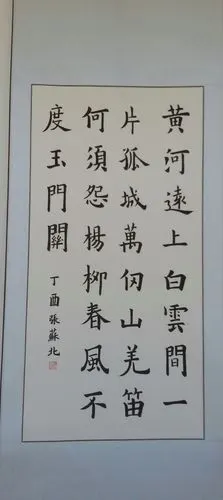 黄河遠上白雲間一
片孤城萬仞山羌笛
何須怨楊柳春風不
度玉門關
丁酉張蘇北